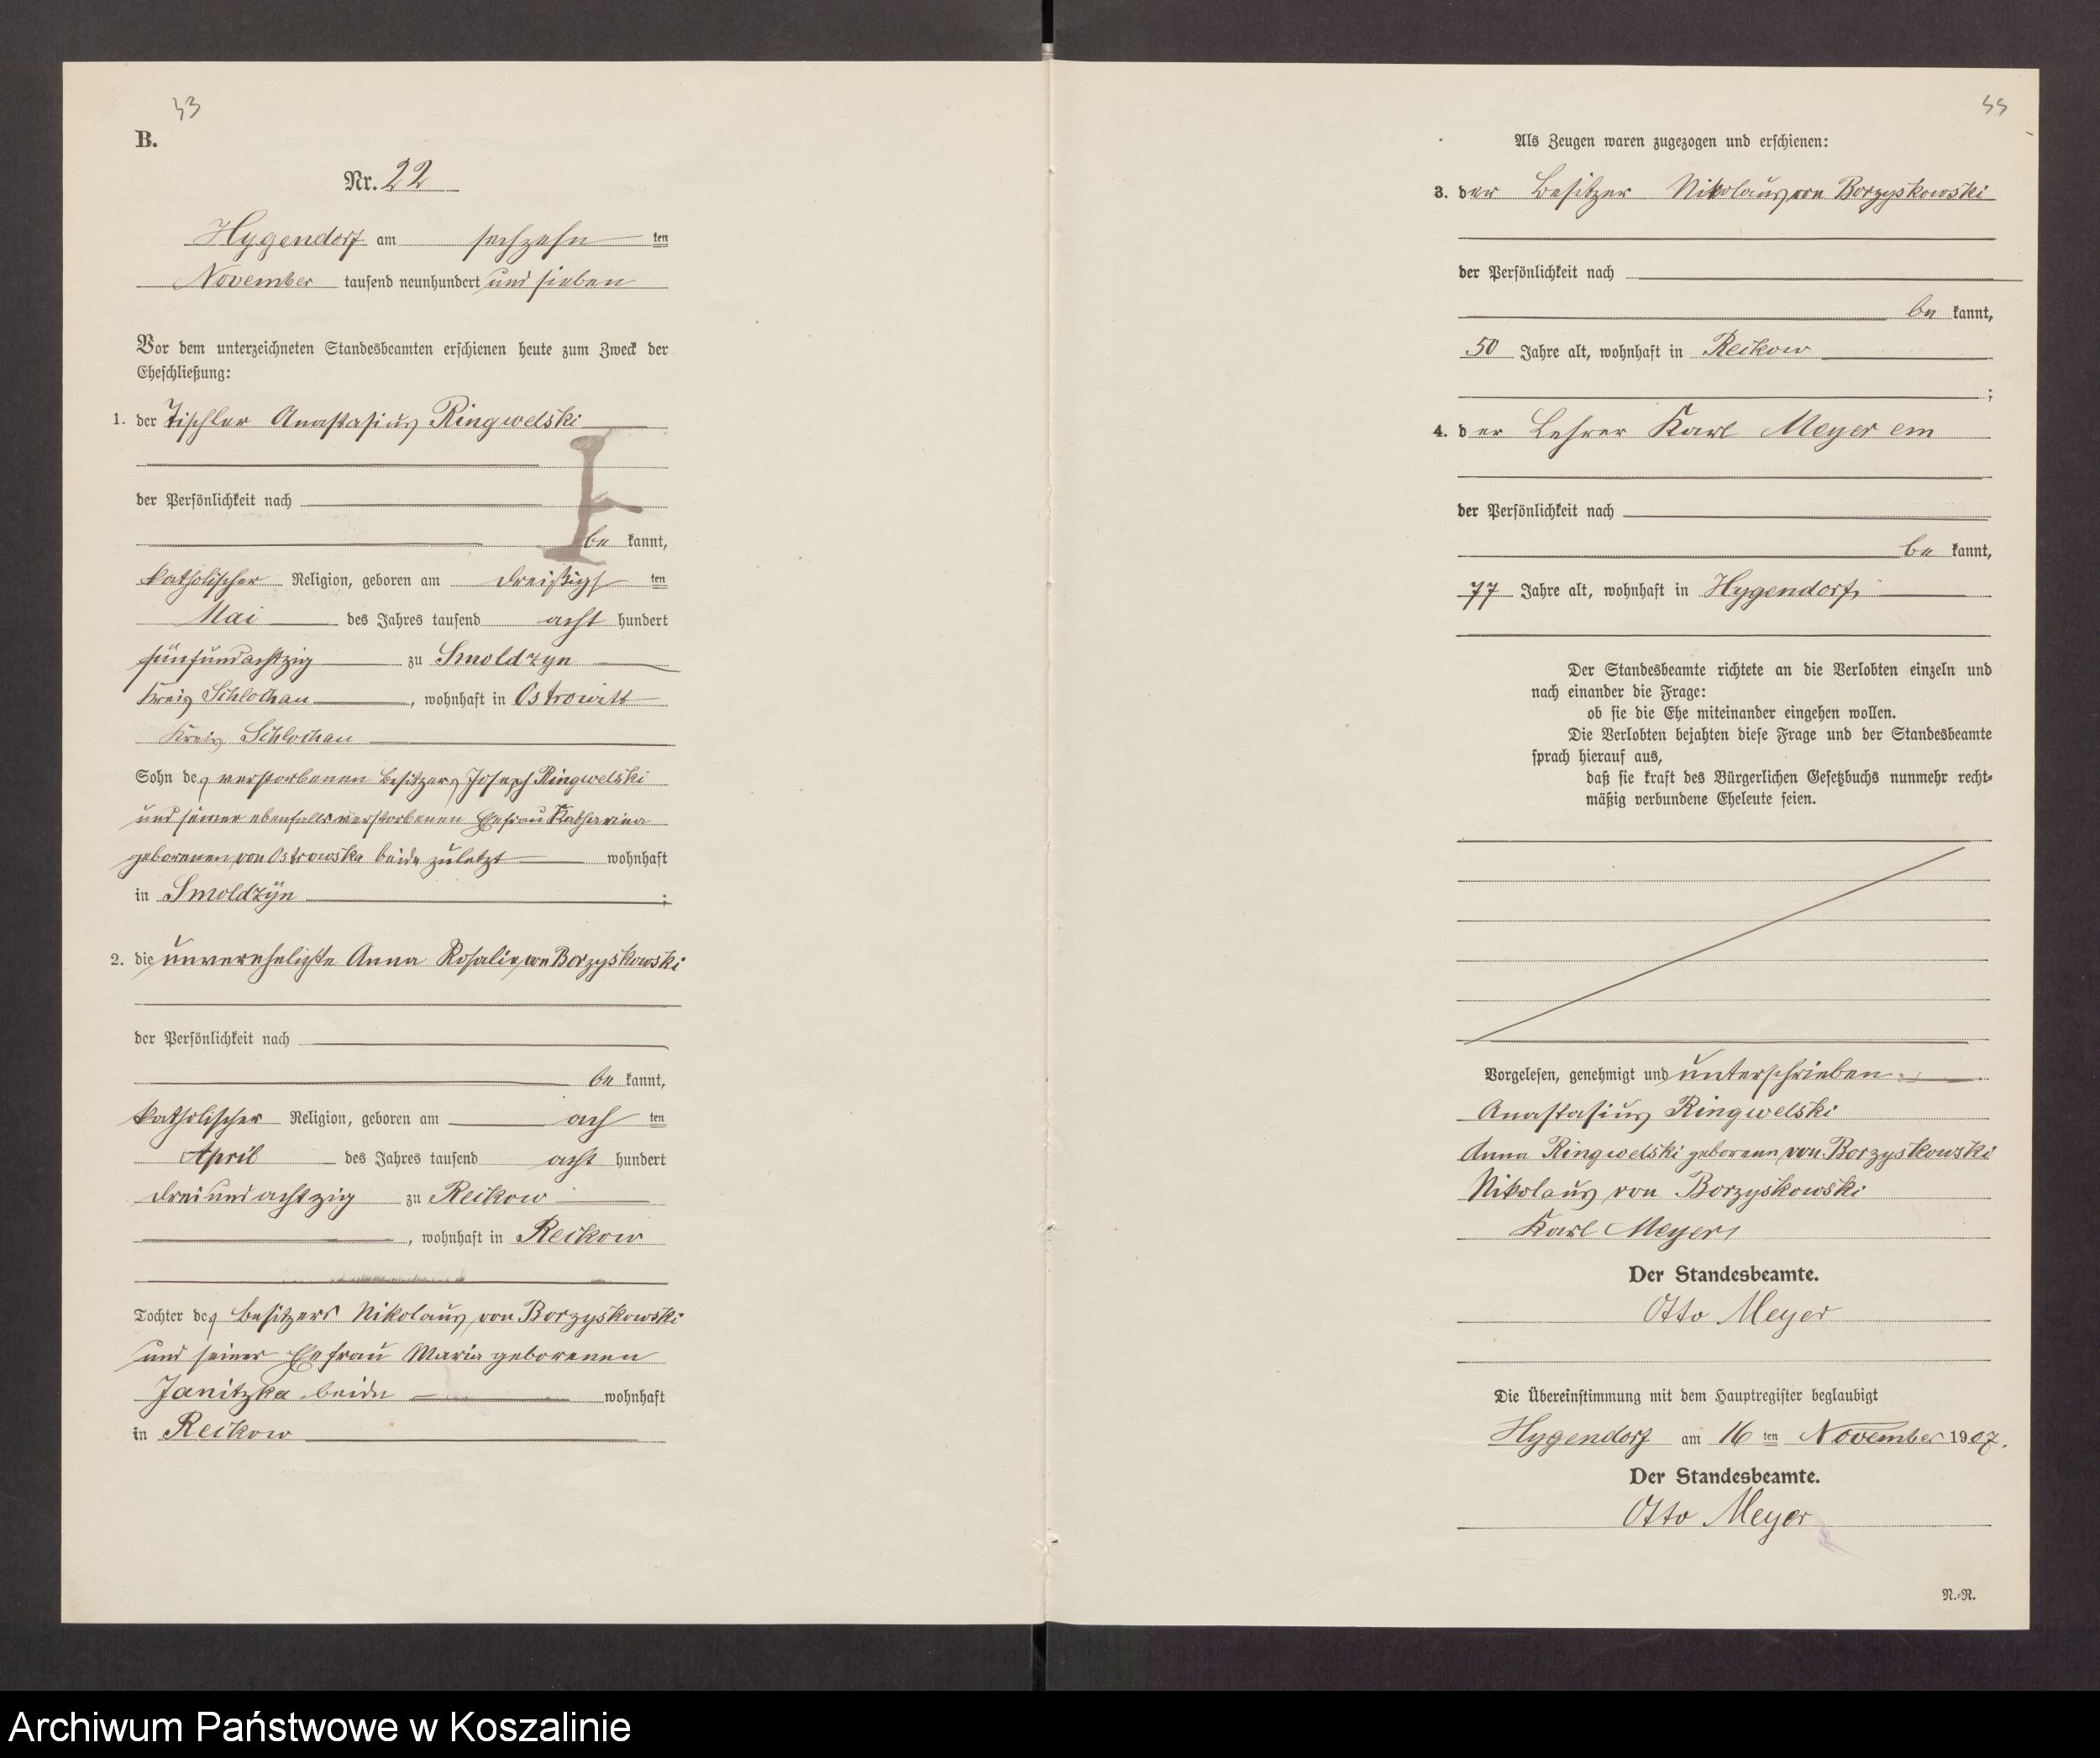 43
B.
Nr. 22
Hygendorf am sechzehn ten
November tausend neunhundert und sieben
Vor dem unterzeichneten Standesbeamten erschienen heute zum Zweck der
Eheschließung:
1. der Tischler Anastasius Ringwelski
der Persönlichkeit nach
be kannt,
katholischer Religion, geboren am dreißigs ten
Mai des Jahres tausend acht hundert
fünfundachtzig zu Smoldzyn
Kreis Schlochau, wohnhaft in Ostrowitt
Kreis Schlochau
Sohn des verstorbenen Besitzers Joseph Ringwelski
und seiner ebenfalls verstorbenen Ehefrau Katharina
geborenen von Ostrowska beide zuletzt wohnhaft
in Smoldzÿn ;
2. die unverehelichte Anna Rosalie von Borzyskowski
der Persönlichkeit nach
be kannt,
katholischer Religion, geboren am ach ten
April des Jahres tausend acht hundert
dreiundachtzig zu Reckow
, wohnhaft in Reckow
Tochter des Besitzers Nikolaus von Borzyskowski
und seiner Ehefrau Maria geborenen
Janitzka beide wohnhaft
in Reckow
Als Zeugen waren zugezogen und erschienen:
3. der Besitzer Nikolaus von Borzyskowski
der Persönlichkeit nach
be kannt,
50 Jahre alt, wohnhaft in Reckow
;
4. der Lehrer Karl Meyer em
der Persönlichkeit nach
be kannt,
77 Jahre alt, wohnhaft in Hygendorf.
Der Standesbeamte richtete an die Verlobten einzeln und
nach einander die Frage:
ob sie die Ehe miteinander eingehen wollen.
Die Verlobten bejahten diese Frage und der Standesbeamte
sprach hierauf aus,
daß sie kraft des Bürgerlichen Gesetzbuchs nunmehr recht-
mäßig verbundene Eheleute seien.
Vorgelesen, genehmigt und unterschrieben
Anastasius Ringwelski
Anna Ringwelski geborene von Borzyskowski
Nikolaus von Borzyskowski
Karl Meyer,
Der Standesbeamte.
Otto Meyer
Die Übereinstimmung mit dem Hauptregister beglaubigt
Hygendorf am 16 ten November 1907.
Der Standesbeamte.
Otto Meyer
N.-R.
Archiwum Państwowe w Koszalinie